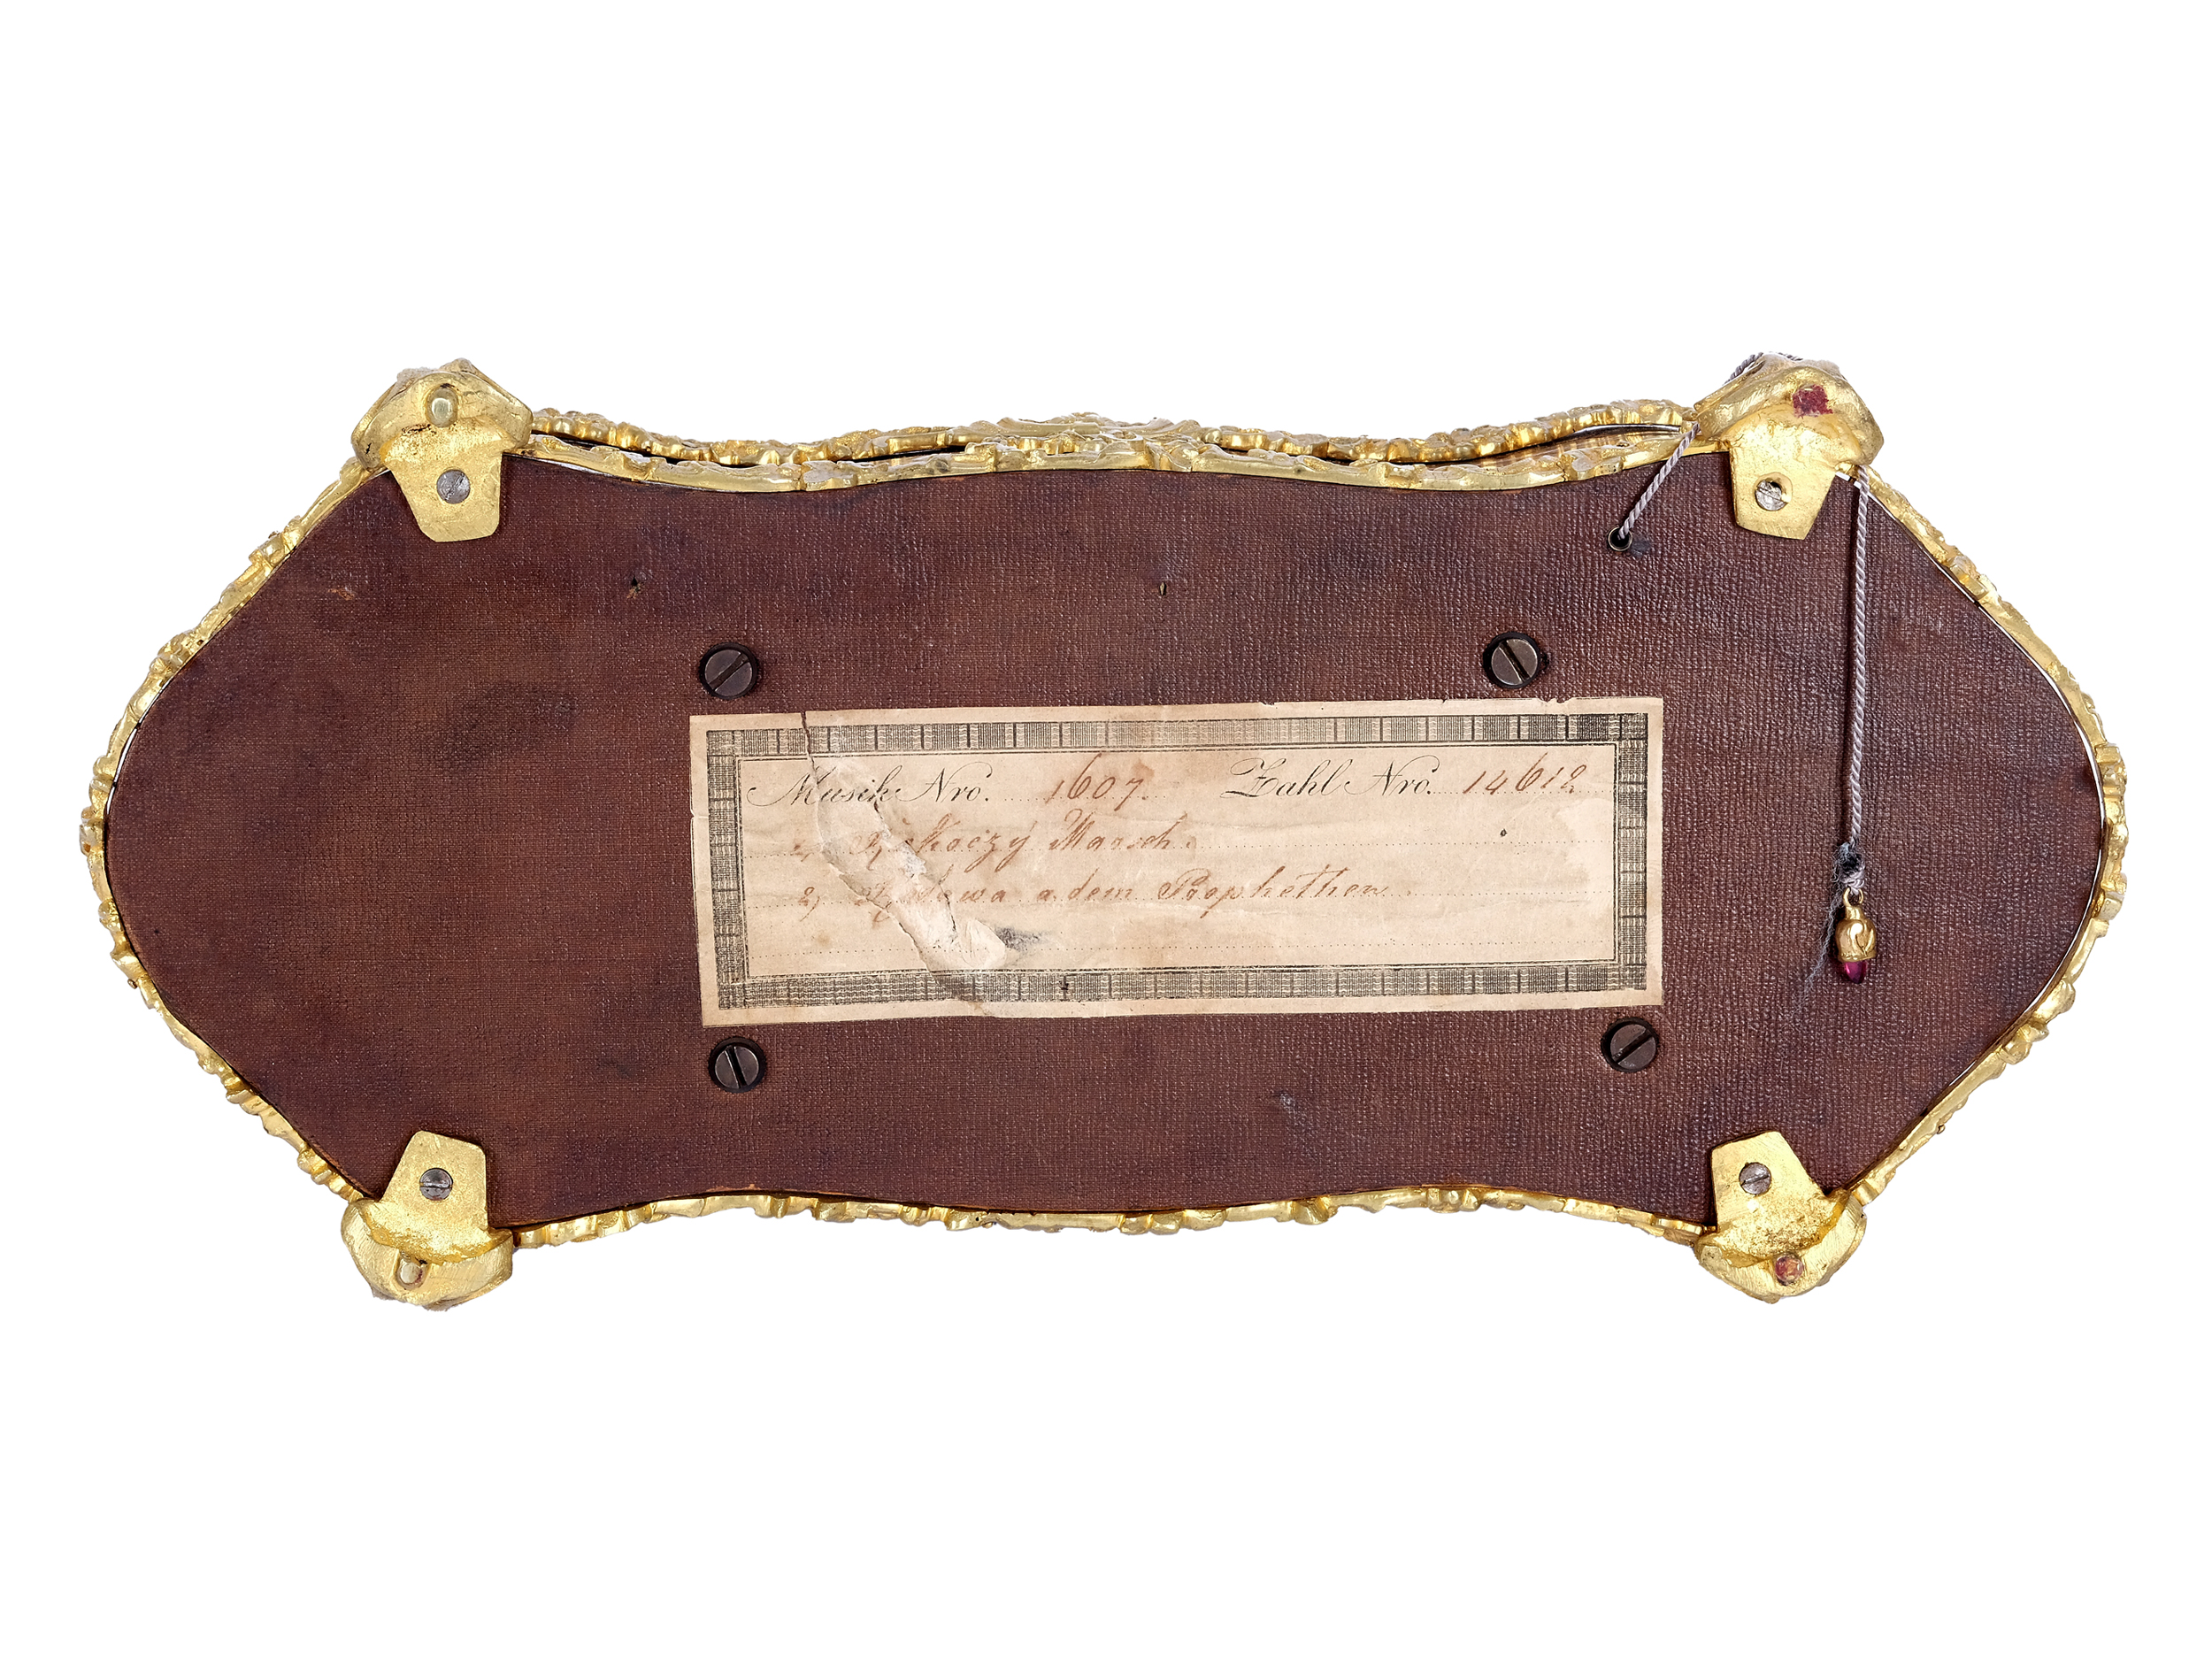 Musik Nro. 1607. Zahl Nro. 14612
Marsch.
2) a. dem Prophethen.